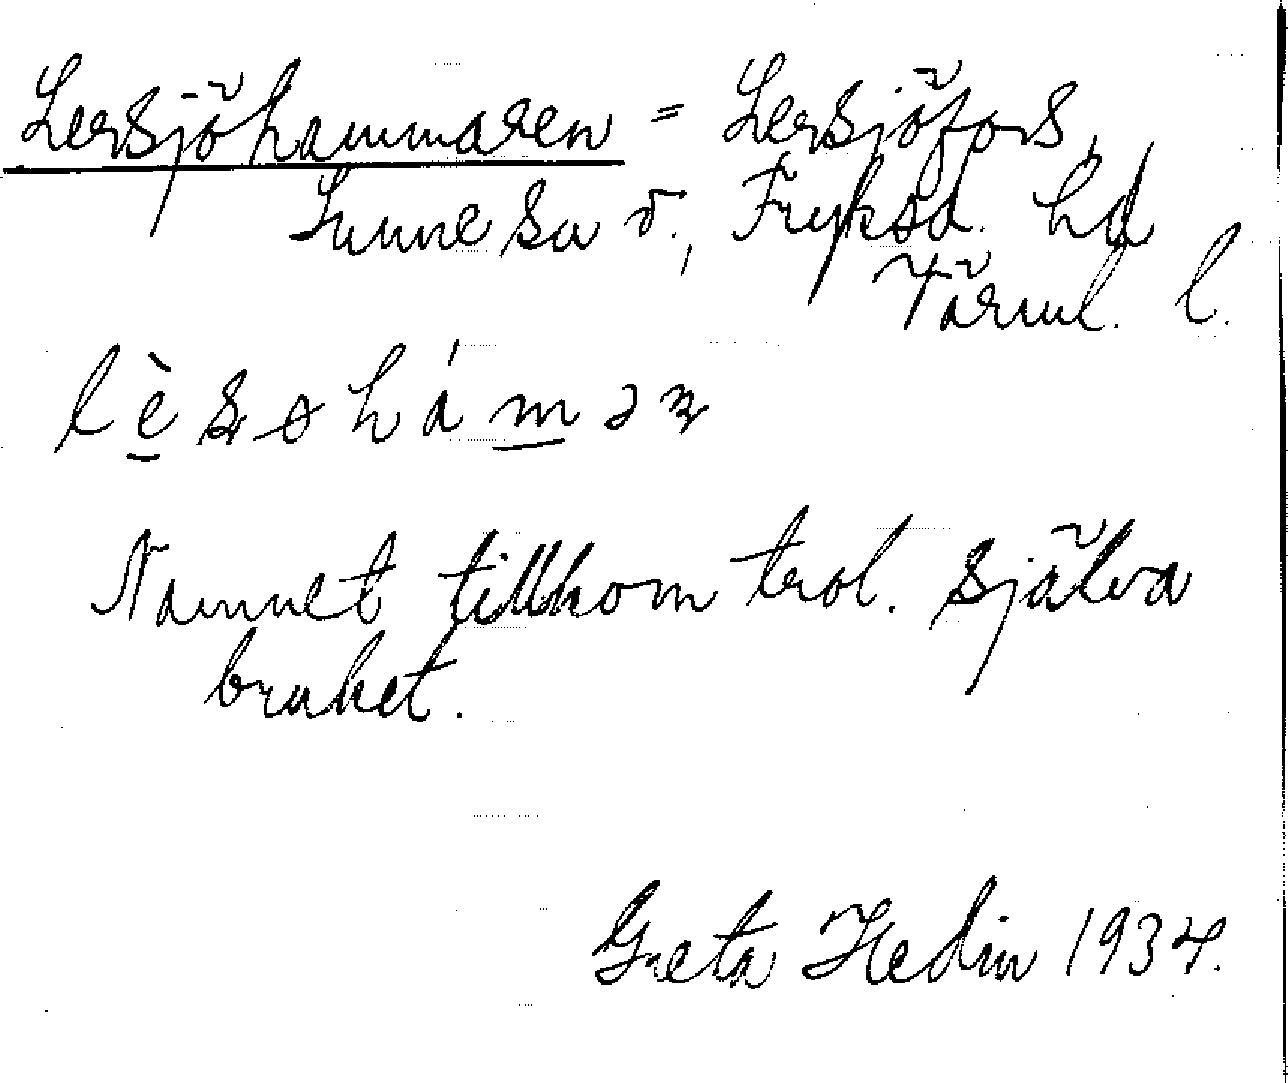 Lersjöhammaren = Lersjöfors,
Sunne sn v., Fryksd. hd
Värml. l.
Namnet tillkom trol. själva
bruket.
Greta Hedin 1934.